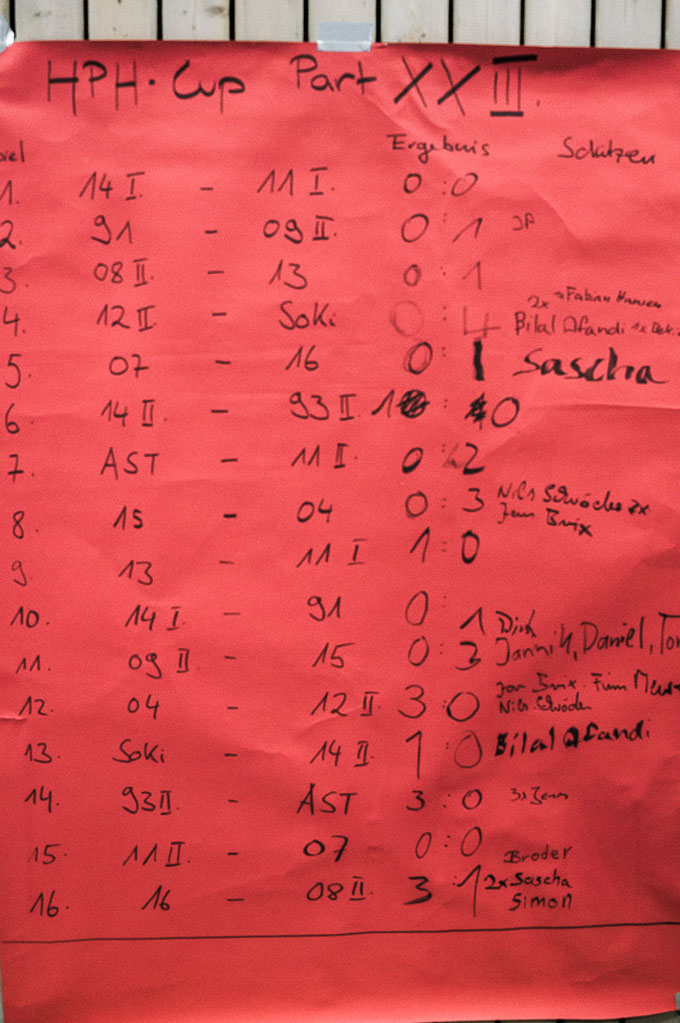 HPH. Cup Part XXIII.
Ergebnis Schützen
1. 14 I - 11 I. 0:0
2. 91 - 09 II. 0:1 JP
3. 08 II. - 13 0:1
2x 1x Fabian
4. 12 II. - Soki 0:4 Bilal Afandi 1x
5. 07 - 16 0:1 Sascha
6. 14 II. - 93 II. 1:0
7. AST - 11 II. 0:2
8. 15 - 04 0:3 Nils 2x
9. 13 - 11 I 1:0
10. 14 I. - 91 0:1 Dirk
11. 09 II. - 15 0:3 Jannik, Daniel,
12. 04 - 12 II. 3:0 Nils
13. Soki - 14 II. 1:0 Bilal Afandi
14. 93 II. - AST 3:0 3x
15. 11 II. - 07 0:0
Broder
16. 16 - 08 II. 3:1 2x Sascha
Simon